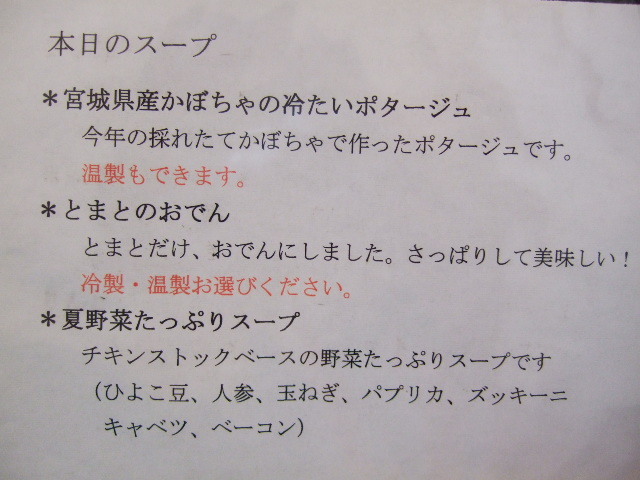 本日のスープ
＊宮城県産かぼちゃの冷たいポタージュ
今年の採れたてかぼちゃで作ったポタージュです。
温製もできます。
＊とまとのおでん
とまとだけ、おでんにしました。さっぱりして美味しい！
冷製・温製お選びください。
＊夏野菜たっぷりスープ
チキンストックベースの野菜たっぷりスープです
（ひよこ豆、人参、玉ねぎ、パプリカ、ズッキーニ
キャベツ、ベーコン）